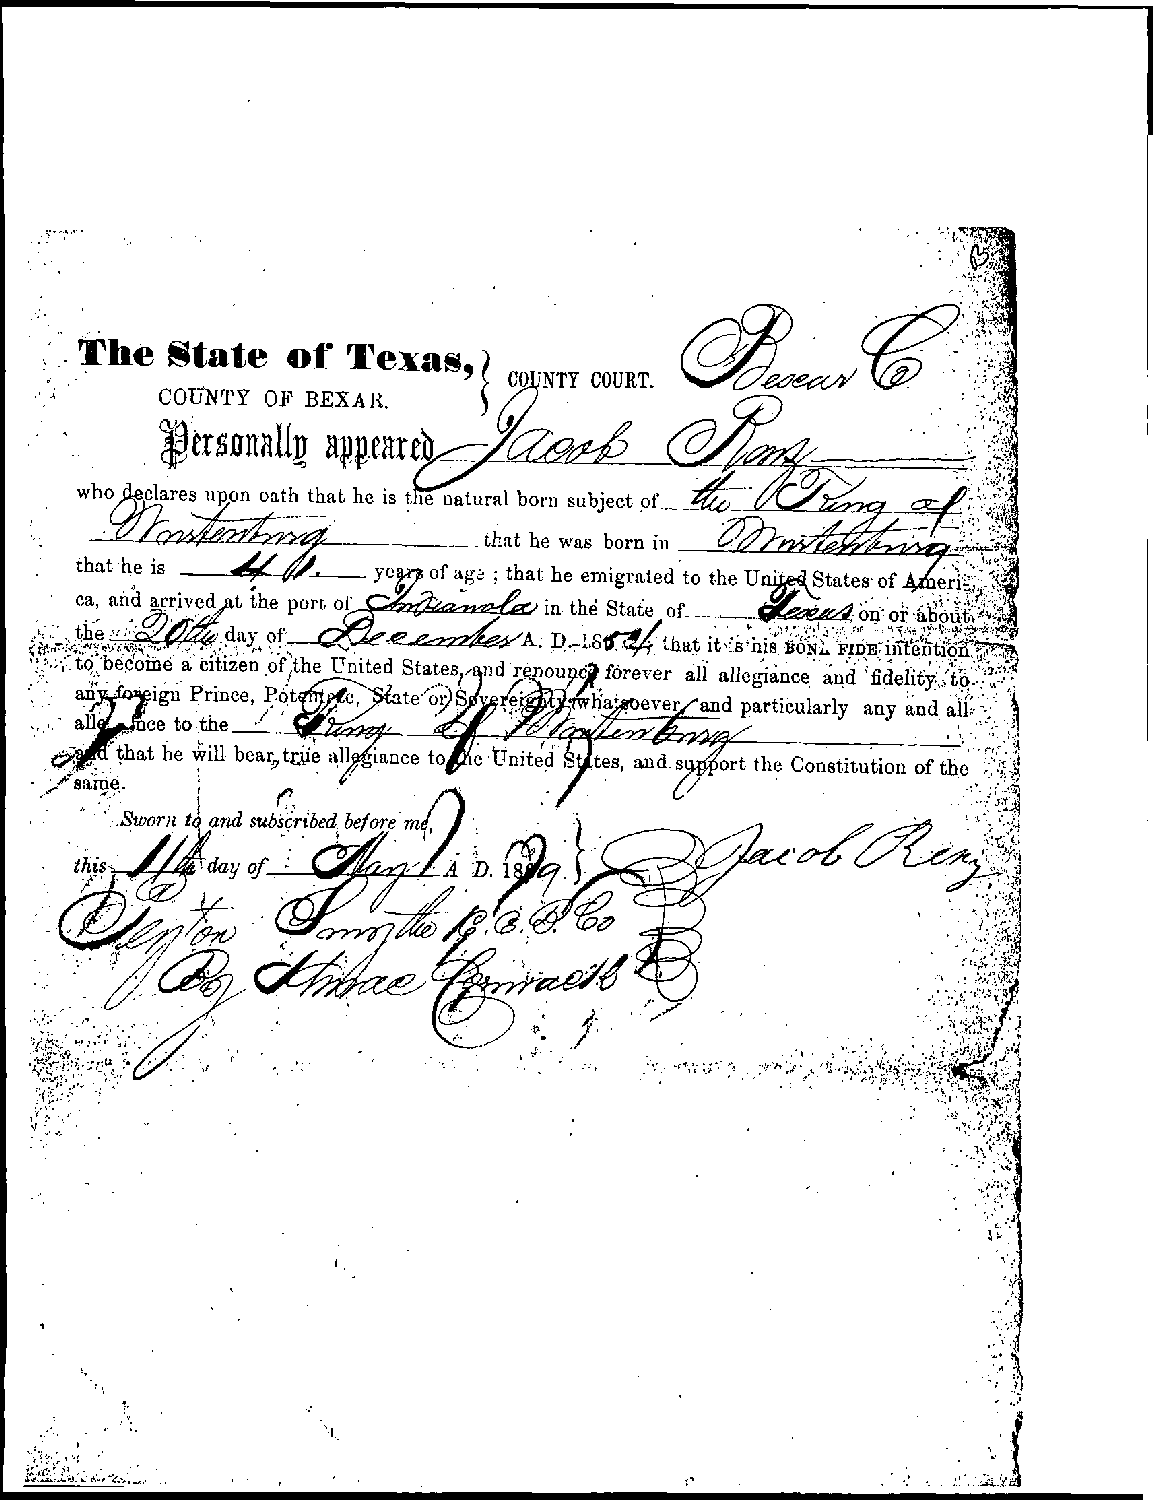 B
The State of Texas, } COUNTY COURT. Bexar C
COUNTY OF BEXAR.
Personally appeared Jacob Renz
who declares upon oath that he is the natural born subject of the King of
Wurtenburg that he was born in Wurtenburg
that he is 41. years of age ; that he emigrated to the United States of Ameri-
ca, and arrived at the port of Indianola in the State of Texas on or about
the 20th day of December A. D. 1854, that it is his BONA FIDE intention
to become a citizen of the United States, and renounce forever all allegiance and fidelity to
any foreign Prince, Potentate, State or Sovereignty whatsoever, and particularly any and all
allegiance to the King of Wurtenburg
and that he will bear true allegiance to the United States, and support the Constitution of the
same.
Sworn to and subscribed before me,
this 11th day of May A. D. 1879. } Jacob Renz
Smythe C. C. B. Co
By